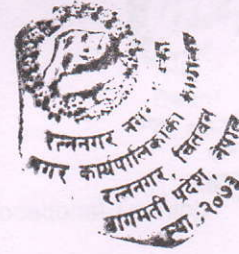 रत्ननगर नगर
नगर कार्यपालिकाको
रत्ननगर, चितवन
बागमती प्रदेश, नेपाल
स्था : २०७३